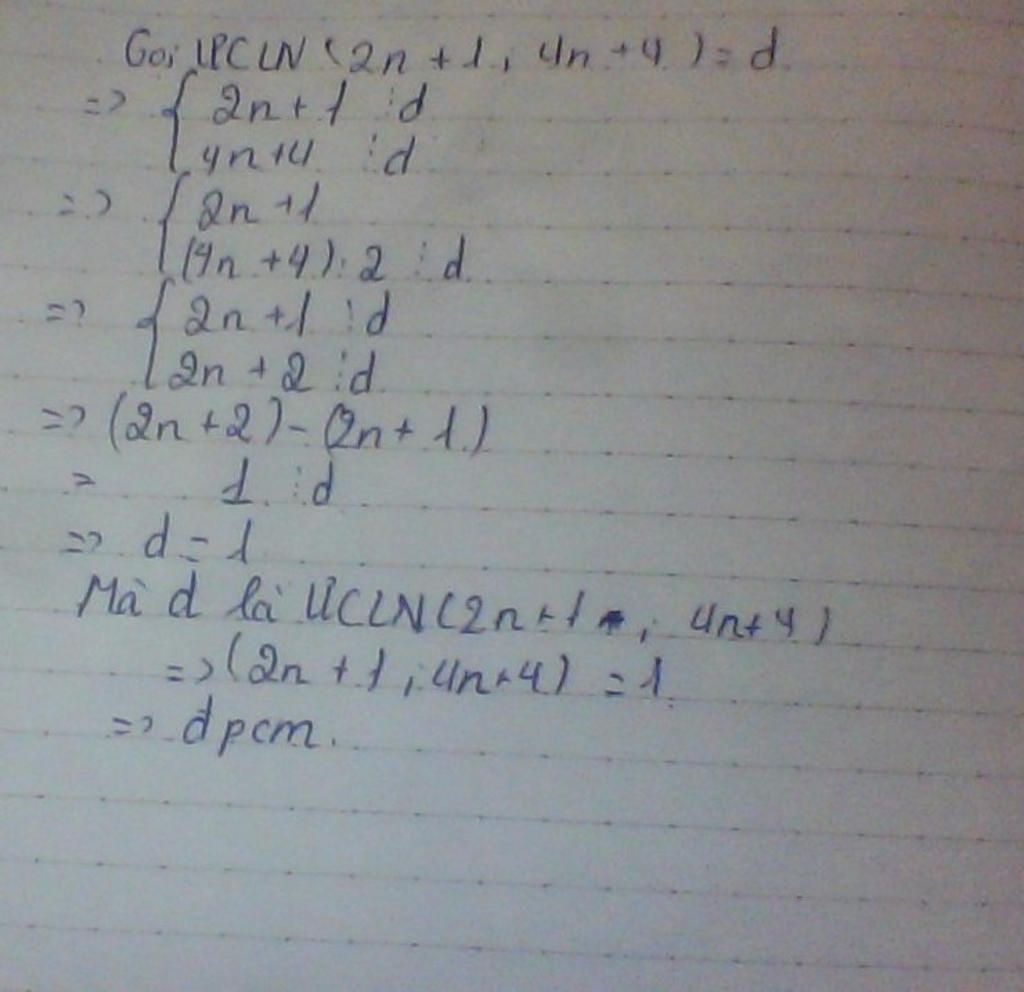 Gọi ƯCLN (2n + 1, 4n + 4) = d
=> { 2n + 1 ⋮ d
4n + 4 ⋮ d
=> { 2n + 1
(4n + 4) : 2 ⋮ d
=> { 2n + 1 ⋮ d
2n + 2 ⋮ d
=> (2n + 2) - (2n + 1)
= 1 ⋮ d
=> d = 1
Mà d là ƯCLN (2n + 1, 4n + 4)
=> (2n + 1, 4n + 4) = 1
=> đpcm.